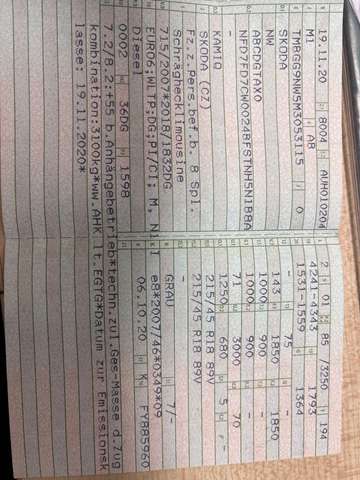 19.11.20 8004 AUH010204
M1 AB
TMBGG9NW5M3053115 0
SKODA
NW
ABCDGTAX0
NFD7FD7CW0024BFSTNH5N1B8A
-
KAMIQ
SKODA (CZ)
Fz.z.Pers.bef.b. 8 Spl.
Schräghecklimousine
715/2007*2018/1832DG
EURO6;WLTP;DG;PI/CI; M, N
Diesel
0002 36DG 1598
2 01 85 /3250 194
4241-4343 1793
1531-1559 1364
- 75 -
143 1850 1850
1000 900 -
1000 900 -
71 3000 70
1250 680 5 -
215/45 R18 89V
215/45 R18 89V
-
GRAU 7/-
e8*2007/46*0349*09
06.10.20 K FY885960
7.2/8.2:+55 b.Anhängebetrieb*techn.zul.Ges-Masse d.Zug
kombination:3100kg*ww.AHK lt.EGTG*Datum zur Emissionsk
lasse: 19.11.2020*